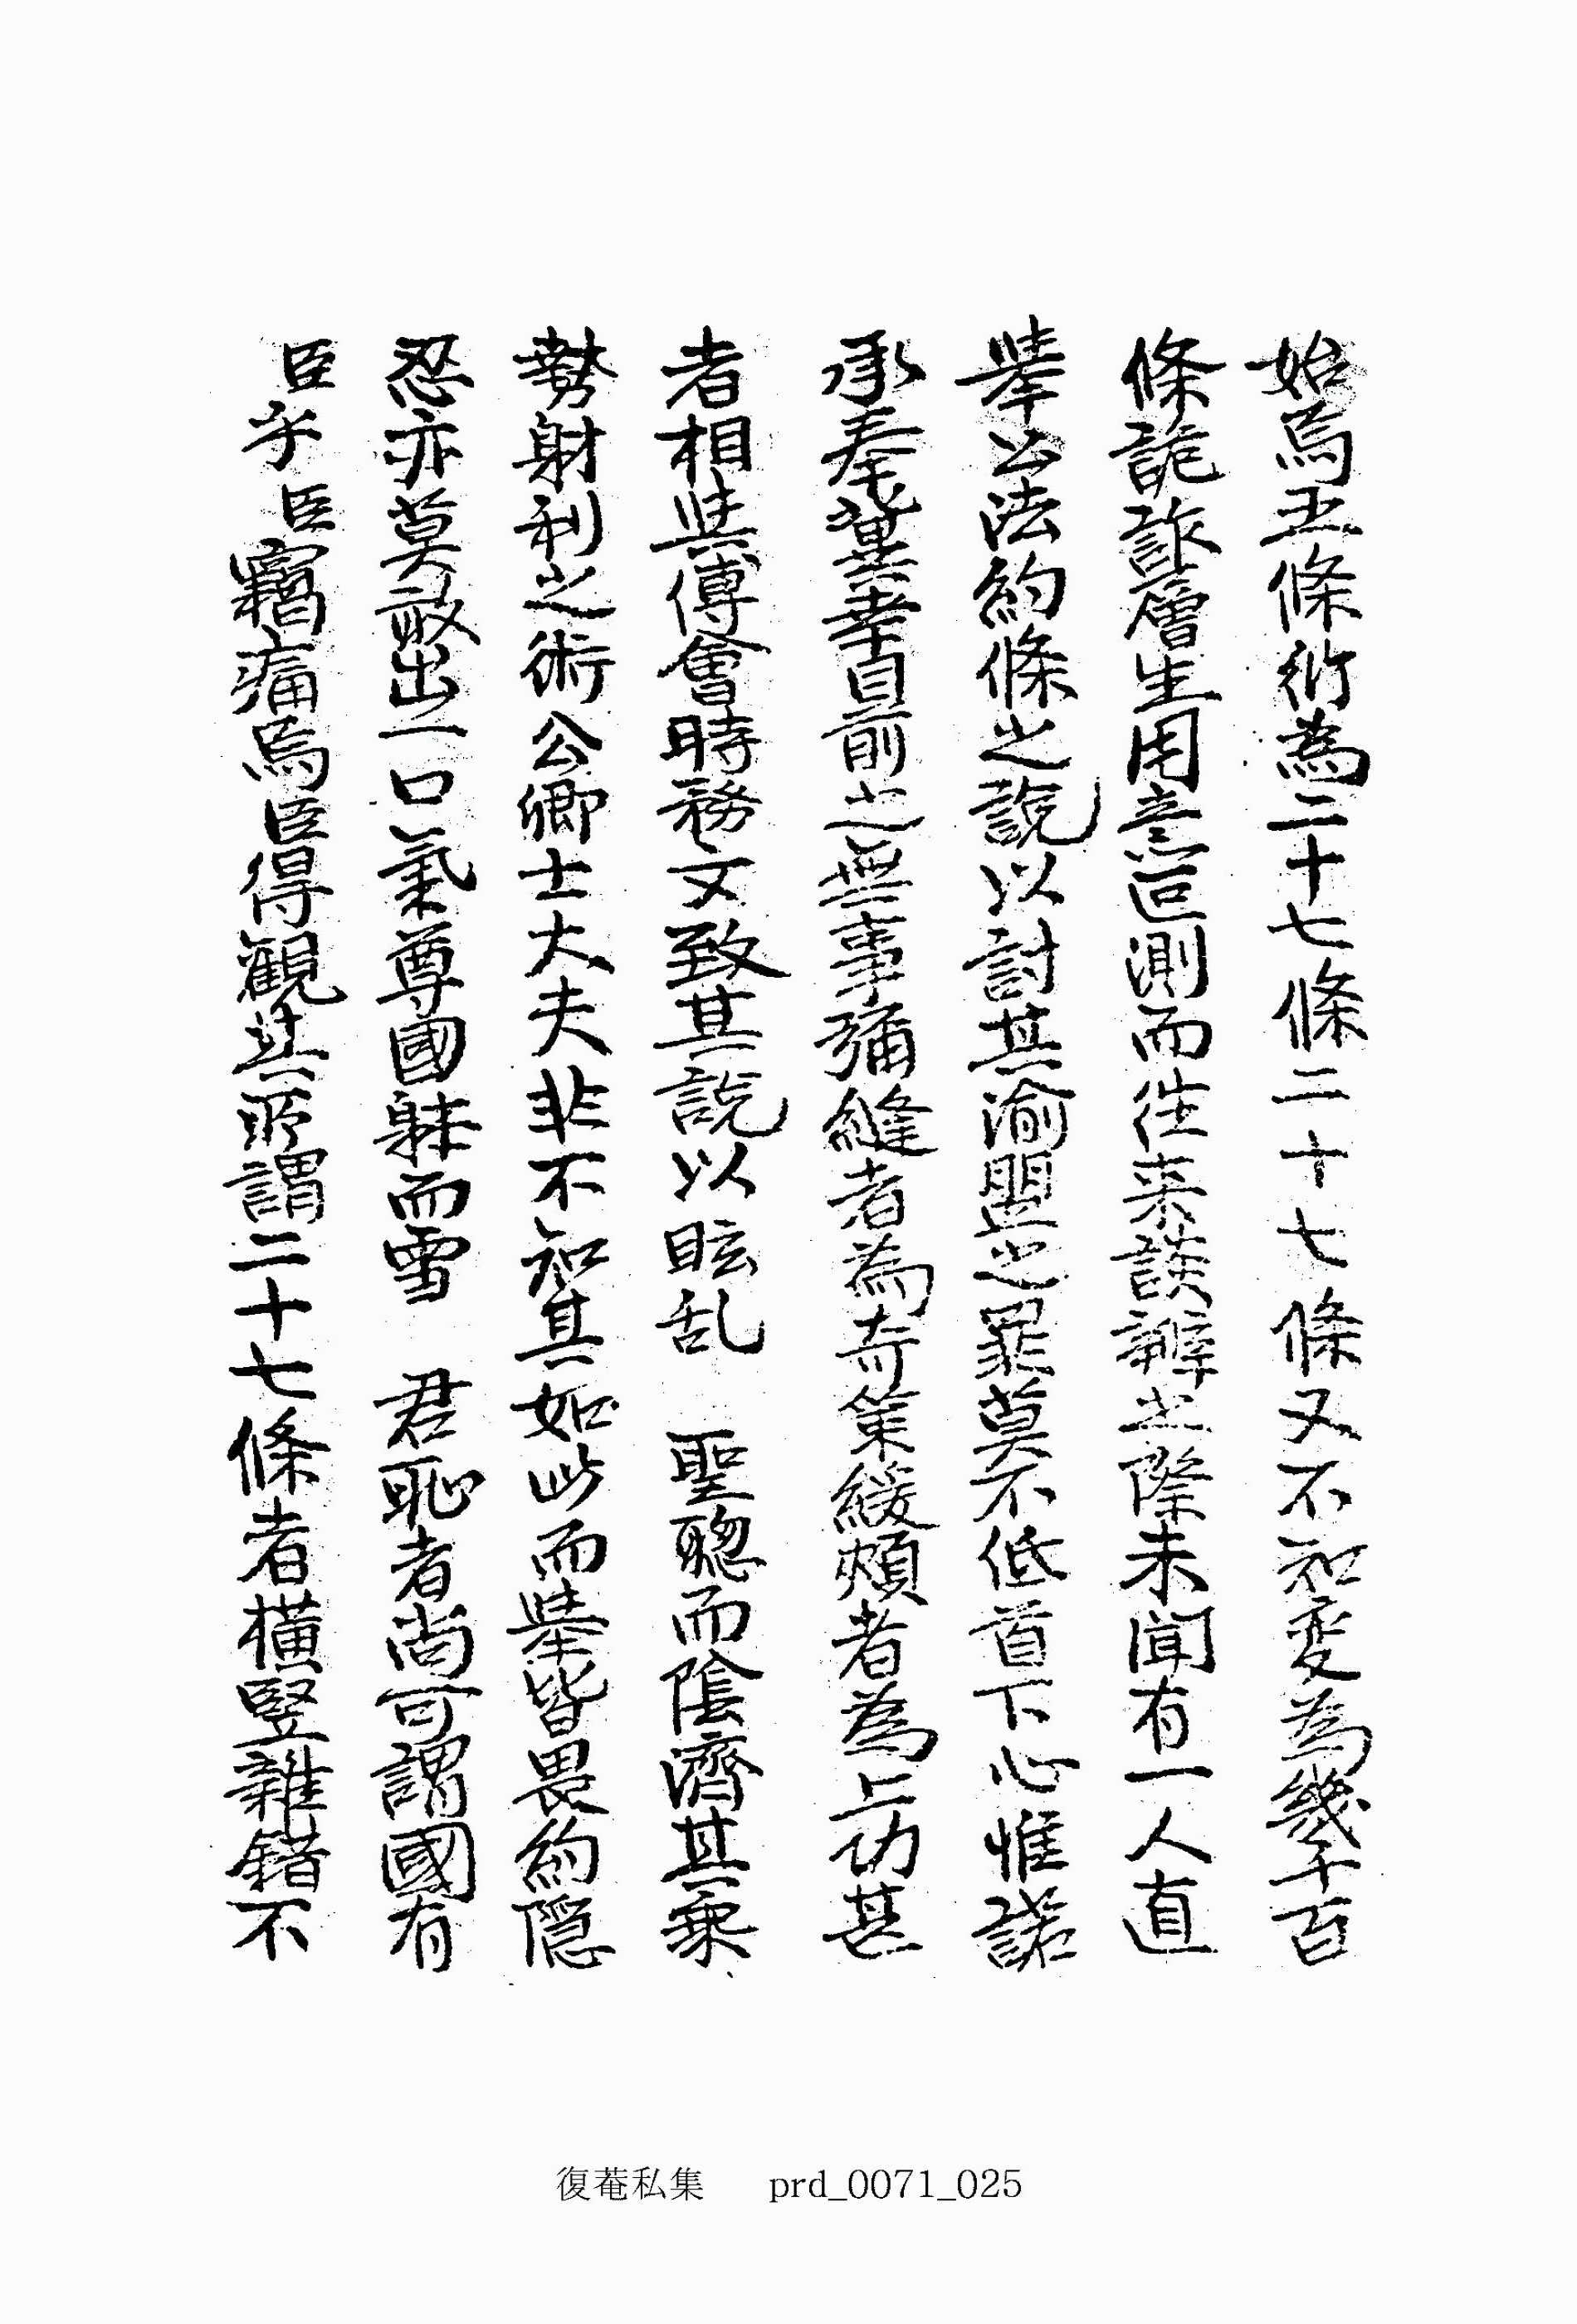 始焉五條衍為二十七條二十七條又不知変為幾千百
條詭詐層生用意叵測而往来談辦之際未聞有一人直
擧公法約條之說以討其渝盟之罪莫不低首下心惟諾
承奉冀幸目前之無事彌縫者為奇策緩頰者為上功甚
者相與傅會時務文致其說以眩乱　聖聦而陰濟其乘
勢射利之術公卿士大夫非不知其如此而擧皆畏約隱
忍亦莫敢出一口氣尊國躰而雪　君恥者尚可謂國有
臣乎臣竊痛焉臣得觀其所謂二十七條者橫竪雜錯不
復菴私集　prd_0071_025